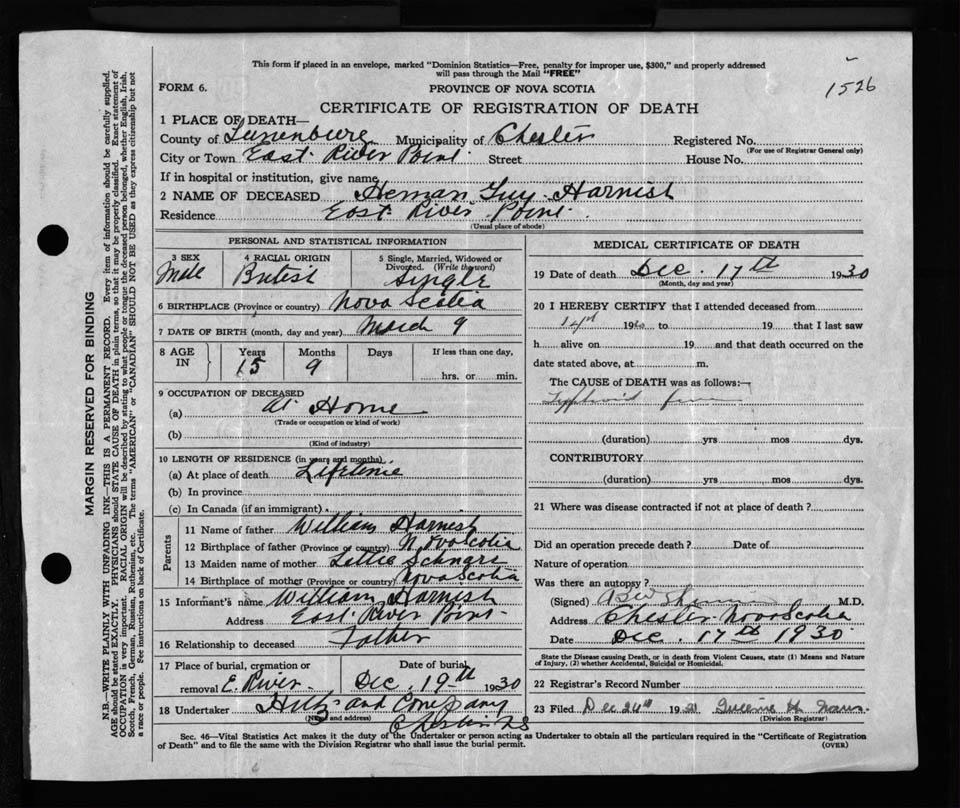 This form if placed in an envelope, marked "Dominion Statistics—Free, penalty for improper use, $300," and properly addressed
will pass through the Mail "FREE"
1526
FORM 6.
PROVINCE OF NOVA SCOTIA
CERTIFICATE OF REGISTRATION OF DEATH
1 PLACE OF DEATH—
County of Lunenburg Municipality of Chester Registered No.
(For use of Registrar General only)
City or Town East River Point Street House No.
If in hospital or institution, give name
2 NAME OF DECEASED Heman Guy Harnish
Residence East River Point
(Usual place of abode)
PERSONAL AND STATISTICAL INFORMATION
3 SEX 4 RACIAL ORIGIN 5 Single, Married, Widowed or
Divorced. (Write the word)
Male British Single
6 BIRTHPLACE (Province or country) Nova Scotia
7 DATE OF BIRTH (month, day and year) March 9
8 AGE IN Years Months Days If less than one day,
15 9 hrs. or min.
9 OCCUPATION OF DECEASED
(a) At Home
(Trade or occupation or kind of work)
(b)
(Kind of industry)
10 LENGTH OF RESIDENCE (in years and months)
(a) At place of death Lifetime
(b) In province
(c) In Canada (if an immigrant)
Parents
11 Name of father William Harnish
12 Birthplace of father (Province or country) Nova Scotia
13 Maiden name of mother Lettie Schnare
14 Birthplace of mother (Province or country) Nova Scotia
15 Informant's name William Harnish
Address East River Point
16 Relationship to deceased Father
17 Place of burial, cremation or Date of burial
removal E. River Dec. 19th 1930
18 Undertaker Hiltz and Company
(Name and address)
Chester NS
MEDICAL CERTIFICATE OF DEATH
19 Date of death Dec. 17th 1930
(Month, day and year)
20 I HEREBY CERTIFY that I attended deceased from
19 to 19 that I last saw
h alive on 19 and that death occurred on the
date stated above, at m.
The CAUSE of DEATH was as follows:—
Typhoid fever
(duration) yrs mos dys.
CONTRIBUTORY
(duration) yrs mos dys.
21 Where was disease contracted if not at place of death?
Did an operation precede death? Date of
Nature of operation
Was there an autopsy?
(Signed) M.D.
Address Chester Nova Scotia
Date Dec. 17th 1930
State the Disease causing Death, or in death from Violent Causes, state (1) Means and Nature
of Injury, (2) whether Accidental, Suicidal or Homicidal.
22 Registrar's Record Number
23 Filed Dec 24th 19
(Division Registrar)
Sec. 46—Vital Statistics Act makes it the duty of the Undertaker or person acting as Undertaker to obtain all the particulars required in the "Certificate of Registration
of Death" and to file the same with the Division Registrar who shall issue the burial permit.
(OVER)
MARGIN RESERVED FOR BINDING
N.B.—WRITE PLAINLY WITH UNFADING INK—THIS IS A PERMANENT RECORD. Every item of information should be carefully supplied.
AGE should be stated EXACTLY. PHYSICIANS should STATE CAUSE OF DEATH in plain terms, so that it may be properly classified. Exact statement of
OCCUPATION is very important. RACIAL ORIGIN will be described by stating to what people or tongue the deceased person belonged, whether English, Irish,
Scotch, French, German, Russian, Ruthenian, etc. The terms "AMERICAN" or "CANADIAN" SHOULD NOT BE USED as they express citizenship but not
a race or people. See instructions on back of Certificate.